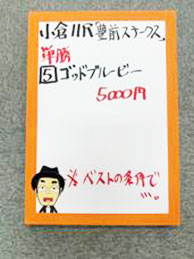 小倉11R「豊前ステークス」
単勝
5 ゴッドブルービー
5000円
ベストの条件で